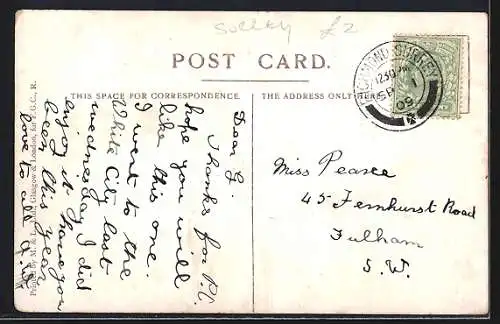 Surrey £2
POST CARD.
THIS SPACE FOR CORRESPONDENCE.
THE ADDRESS ONLY
RICHMOND·SURREY
1230
SP 1
09
Dear G.
Thanks for P.C.
hope you will
like this one.
I went to the
White City last
wednesday I did
enjoy it. have you
been this year
love to all
Miss Pearce
45 Fernhurst Road
Fulham
S.W.
Printed by M. & L. Glasgow & London, for F.G.C., R.